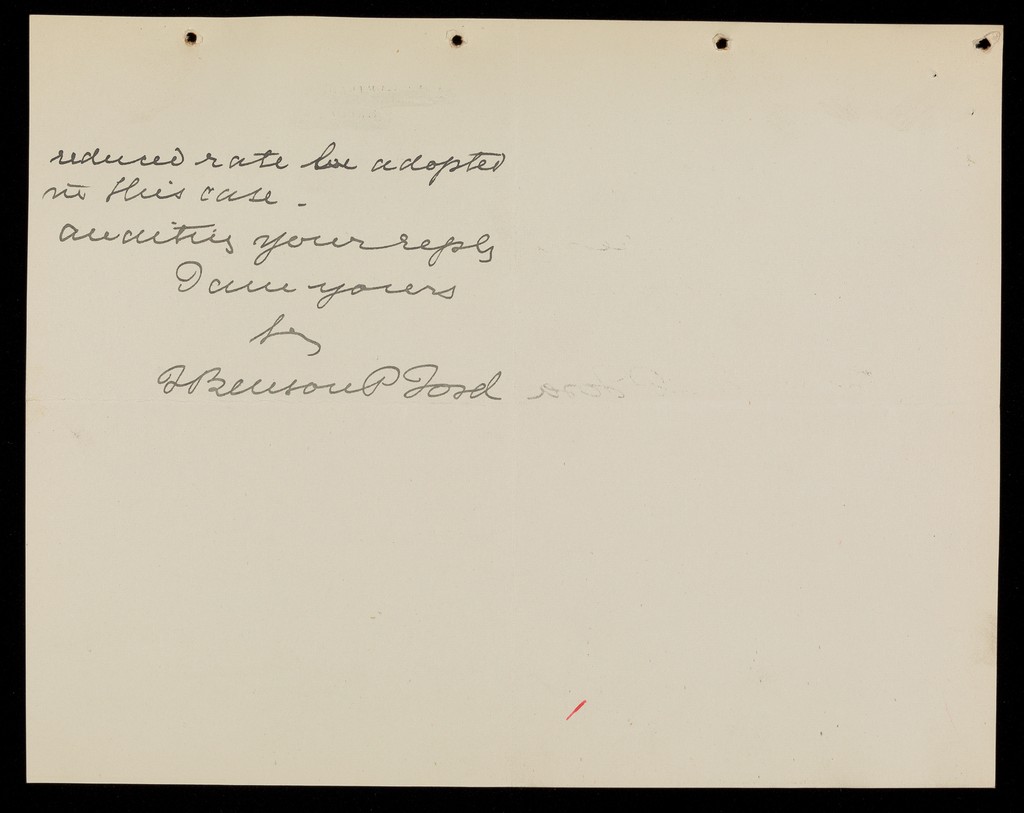 reduced rate be adopted
in this case -
awaiting your reply
I am yours
J Benson P Ford